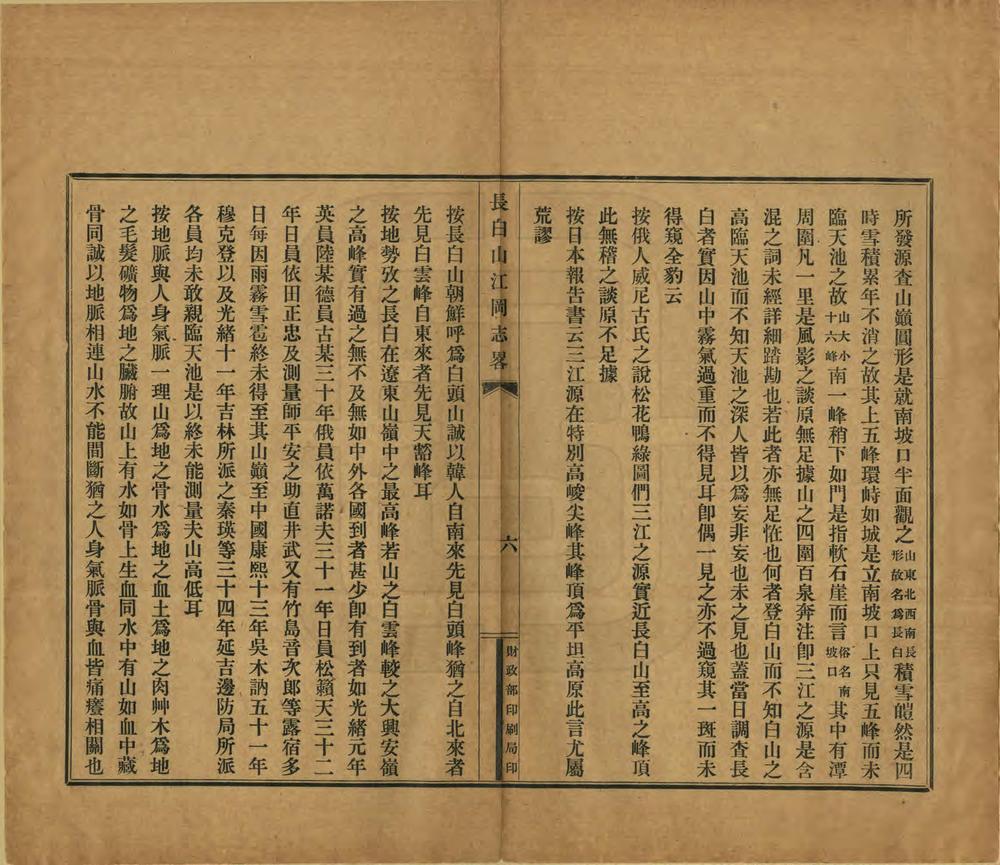 所發源查山巔圓形是就南坡口半面觀之山東北西南長形故名爲長白積雪皚然是四
時雪積累年不消之故其上五峰環峙如城是立南坡口上只見五峰而未
臨天池之故山大小十六峰南一峰稍下如門是指軟石崖而言俗名南坡口其中有潭
周圍凡一里是風影之談原無足據山之四圍百泉奔注卽三江之源是含
混之詞未經詳細踏勘也若此者亦無足恠也何者登白山而不知白山之
高臨天池而不知天池之深人皆以爲妄非妄也未之見也蓋當日調查長
白者實因山中霧氣過重而不得見耳卽偶一見之亦不過窺其一斑而未
得窺全豹云
按俄人威尼古氏之說松花鴨綠圖們三江之源實近長白山至高之峰頂
此無稽之談原不足據
按日本報告書云三江源在特別高峻尖峰其峰頂爲平坦高原此言尤屬
荒謬
長白山江岡志畧
六
財政部印刷局印
按長白山朝鮮呼爲白頭山誠以韓人自南來先見白頭峰猶之自北來者
先見白雲峰自東來者先見天豁峰耳
按地勢攷之長白在遼東山嶺中之最高峰若山之白雲峰較之大興安嶺
之高峰實有過之無不及無如中外各國到者甚少卽有到者如光緒元年
英員陸某德員古某三十年俄員依萬諾夫三十一年日員松籟天三十二
年日員依田正忠及測量師平安之助直井武又有竹島音次郎等露宿多
日每因雨霧雪雹終未得至其山巔至中國康熙十三年吳木訥五十一年
穆克登以及光緒十一年吉林所派之秦瑛等三十四年延吉邊防局所派
各員均未敢親臨天池是以終未能測量夫山高低耳
按地脈與人身氣脈一理山爲地之骨水爲地之血土爲地之肉艸木爲地
之毛髮礦物爲地之臟腑故山上有水如骨上生血同水中有山如血中藏
骨同誠以地脈相連山水不能間斷猶之人身氣脈骨與血皆痛癢相關也